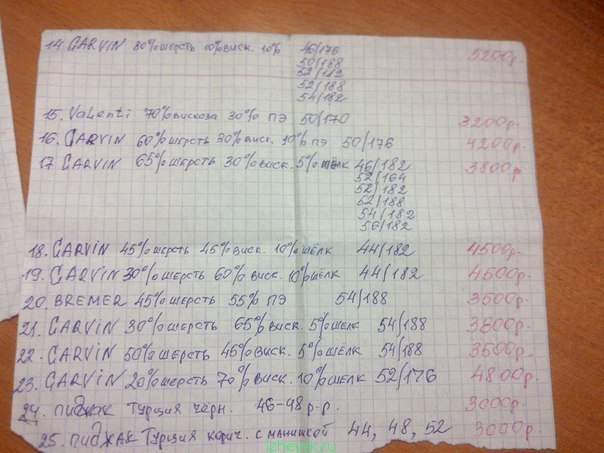 14. GARVIN 80% шерсть 10% виск. 10% 46/176 5200р.
50/188
52/182
52/188
54/182
15. Valenti 70% вискоза 30% ПЭ 50/170 3200р.
16. GARVIN 60% шерсть 30% виск. 10% ПЭ 50/176 4200р.
17. GARVIN 65% шерсть 30% виск. 5% шёлк 46/182 3800р.
52/164
52/182
52/188
54/182
56/182
18. GARVIN 45% шерсть 45% виск. 10% шёлк 44/182 4500р.
19. GARVIN 30% шерсть 60% виск. 10% шёлк 44/182 4500р.
20. BREMER 45% шерсть 55% ПЭ 54/188 3500р.
21. GARVIN 30% шерсть 65% виск. 5% шёлк 54/188 3800р.
22. GARVIN 50% шерсть 45% виск. 5% шёлк 54/188 3500р.
23. GARVIN 20% шерсть 70% виск. 10% шёлк 52/176 4800р.
24. пиджак Турция чёрн. 46-48 р-р. 3000р.
25. пиджак Турция корич. с манишкой 44, 48, 52 3000р.